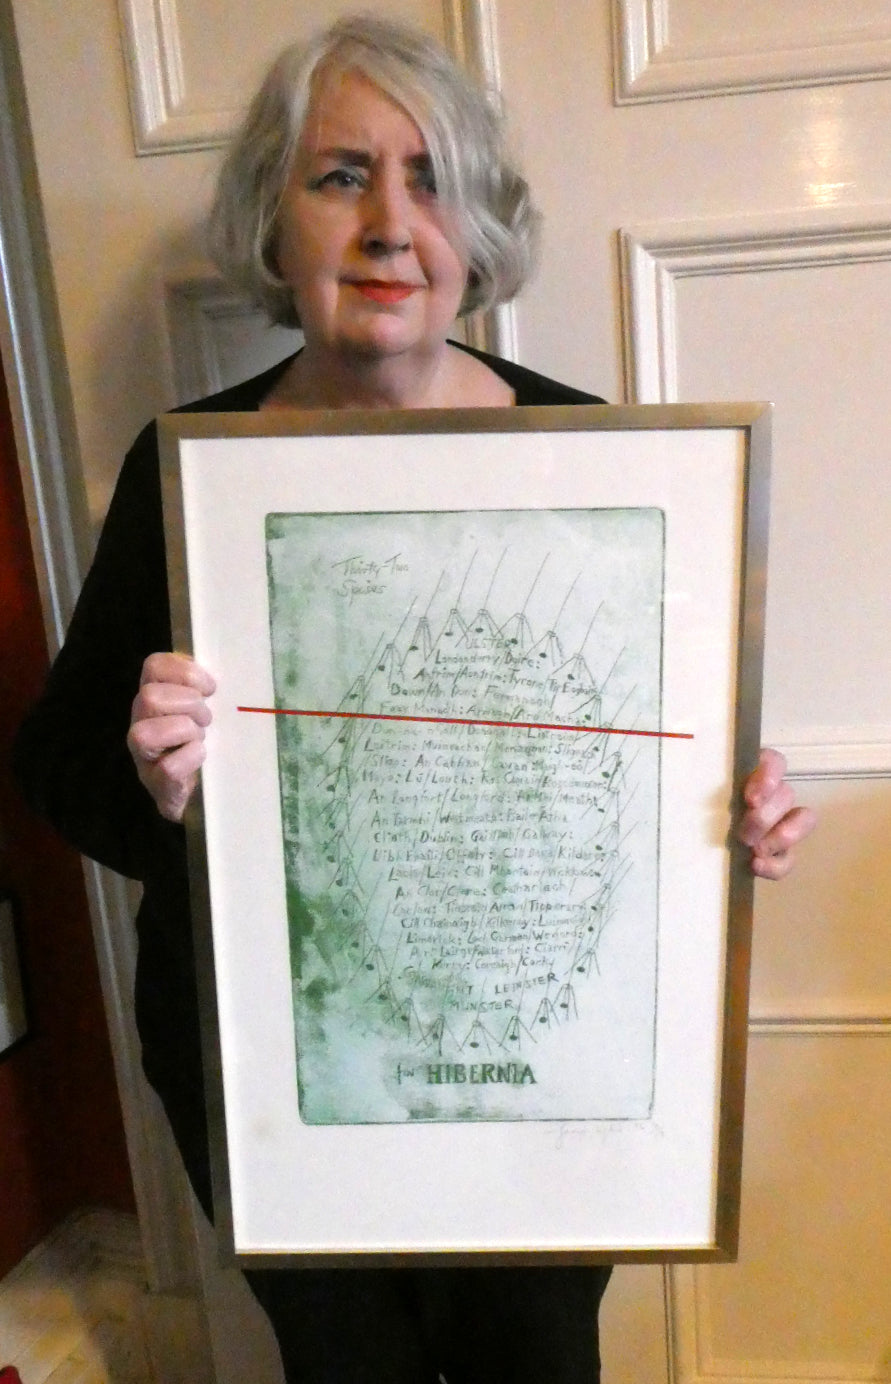 Thirty-Two
Speirs
ULSTER
Londonderry/Doire:
Antrim/Aontrim: Tyrone/Tir Eoghain
Down/An Dun: Fermanagh
Fear Manach: Armagh/Ard Macha:
Dun na nGall/Donegal:
Leitrim: Muineachan/Monaghan:
An Cabhan/Cavan:
Mayo: Lú/Louth: Ros Comain/Roscommon
An Longfort/Longford: An Mhi/Meath:
An Iarmhi/Westmeath: Baile Atha
Cliath/Dublin: Gaillimh/Galway:
Uibh Fhaili/Offaly: Cill Dara/Kildare:
Laois/Leix: Cill Mhantain/Wicklow
An Clar/Clare: Ceatharlach
Carlow: Tiobraid Arran/Tipperary
Cill Chainnigh/Kilkenny: Luimneach
Limerick: Loch Garman/Wexford:
Port Lairge/Waterford: Ciarrai
Kerry: Corcaigh/Cork
LEINSTER
MUNSTER
for HIBERNIA